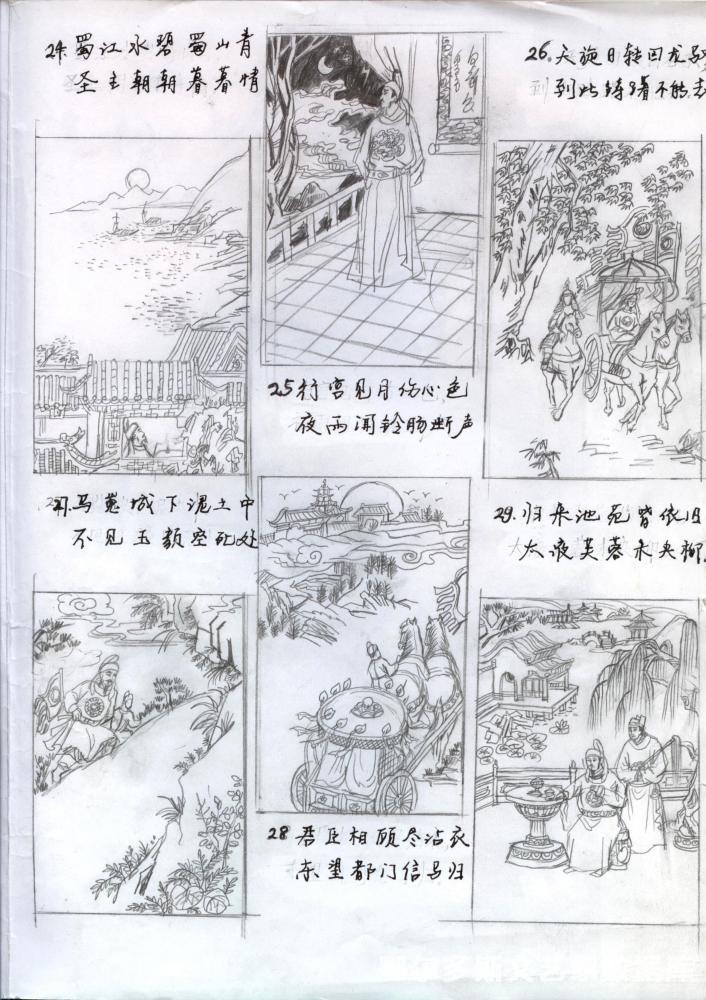 24. 蜀江水碧蜀山青
圣主朝朝暮暮情
25 行宫见月伤心色
夜雨闻铃肠断声
26. 天旋日转回龙驭
到此踌躇不能去
27. 马嵬坡下泥土中
不见玉颜空死处
28 君臣相顾尽沾衣
东望都门信马归
29. 归来池苑皆依旧
太液芙蓉未央柳